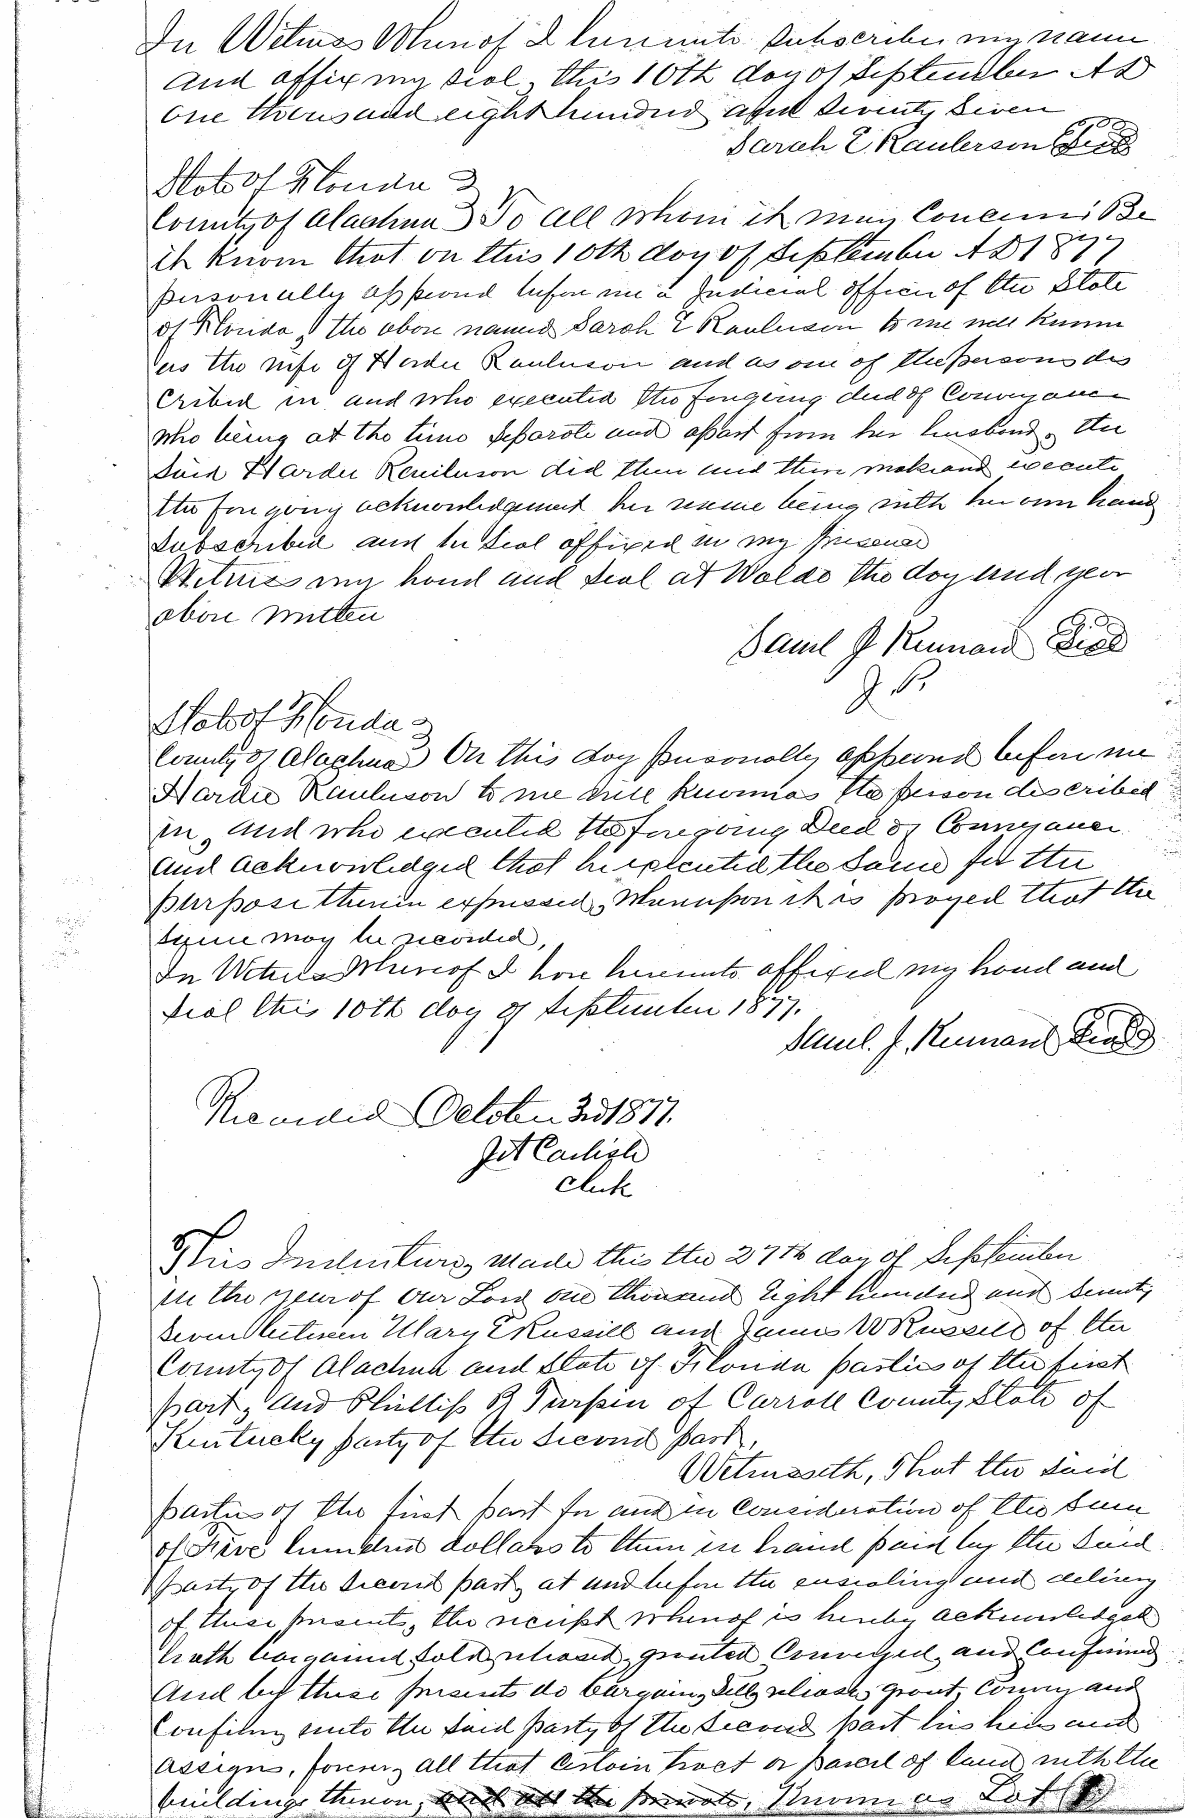 In Witness Whereof I hereunto subscribe my name
and affix my seal, this 10th day of September AD
one thousand eight hundred and seventy seven
Sarah E. Raulerson Seal
State of Florida
County of Alachua To all whom it may Concern: Be
it known that on this 10th day of September AD 1877
personally appeared before me a Judicial officer of the State
of Florida, the above named Sarah E Raulerson to me well known
as the wife of Hardee Raulerson and as one of the persons des
cribed in and who executed the foregoing deed of Conveyance
who being at the time separate and apart from her husband, the
said Hardee Raulerson did then and there make and execute
the foregoing acknowledgement her name being with her own hand
subscribed and her seal affixed in my presence
Witness my hand and seal at Waldo the day and year
above written
Saml J Kennard Seal
J. P.
State of Florida
County of Alachua On this day personally appeared before me
Hardee Raulerson to me well known as the person described
in, and who executed the foregoing Deed of Conveyance
and acknowledged that he executed the same for the
purpose therein expressed, Whereupon it is prayed that the
same may be recorded,
In Witness Whereof I have hereunto affixed my hand and
seal this 10th day of September 1877.
Saml. J. Kennard Seal
Recorded October 3rd 1877.
J A Carlisle
Clerk
This Indenture, made this the 27th day of September
in the year of our Lord one thousand Eight hundred and seventy
seven between Mary E Russell and James W Russell of the
County of Alachua and State of Florida parties of the first
part, and Phillip R Turpin of Carroll County, State of
Kentucky party of the second part,
Witnesseth, That the said
parties of the first part for and in Consideration of the sum
of Five hundred dollars to them in hand paid by the said
party of the second part, at and before the ensealing and delivery
of these presents, the receipt whereof is hereby acknowledged
hath bargained, sold, released, granted, Conveyed, and Confirmed
And by these presents do bargain, sell, release, grant, Convey and
Confirm unto the said party of the second part his heirs and
assigns, forever, all that certain tract or parcel of land with the
buildings thereon, and all the , Known as Lot